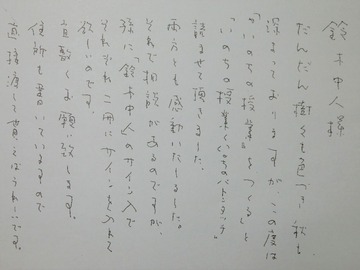 鈴木中人様
だんだん樹々も色づき秋も
深まっておりますが、この度は
「いのちの授業をつくる」と
「いのちの授業(いのちのバトンタッチ)」
読ませて頂きました。
両方とも感動いたしました。
それで相談があるのですが、
孫に「鈴木中人」のサイン入で
それぞれ二冊にサインを入れて
欲しいのです。
宜敷くお願い致します。
住所も書いていますので
直接渡して貰えばうれしいです。